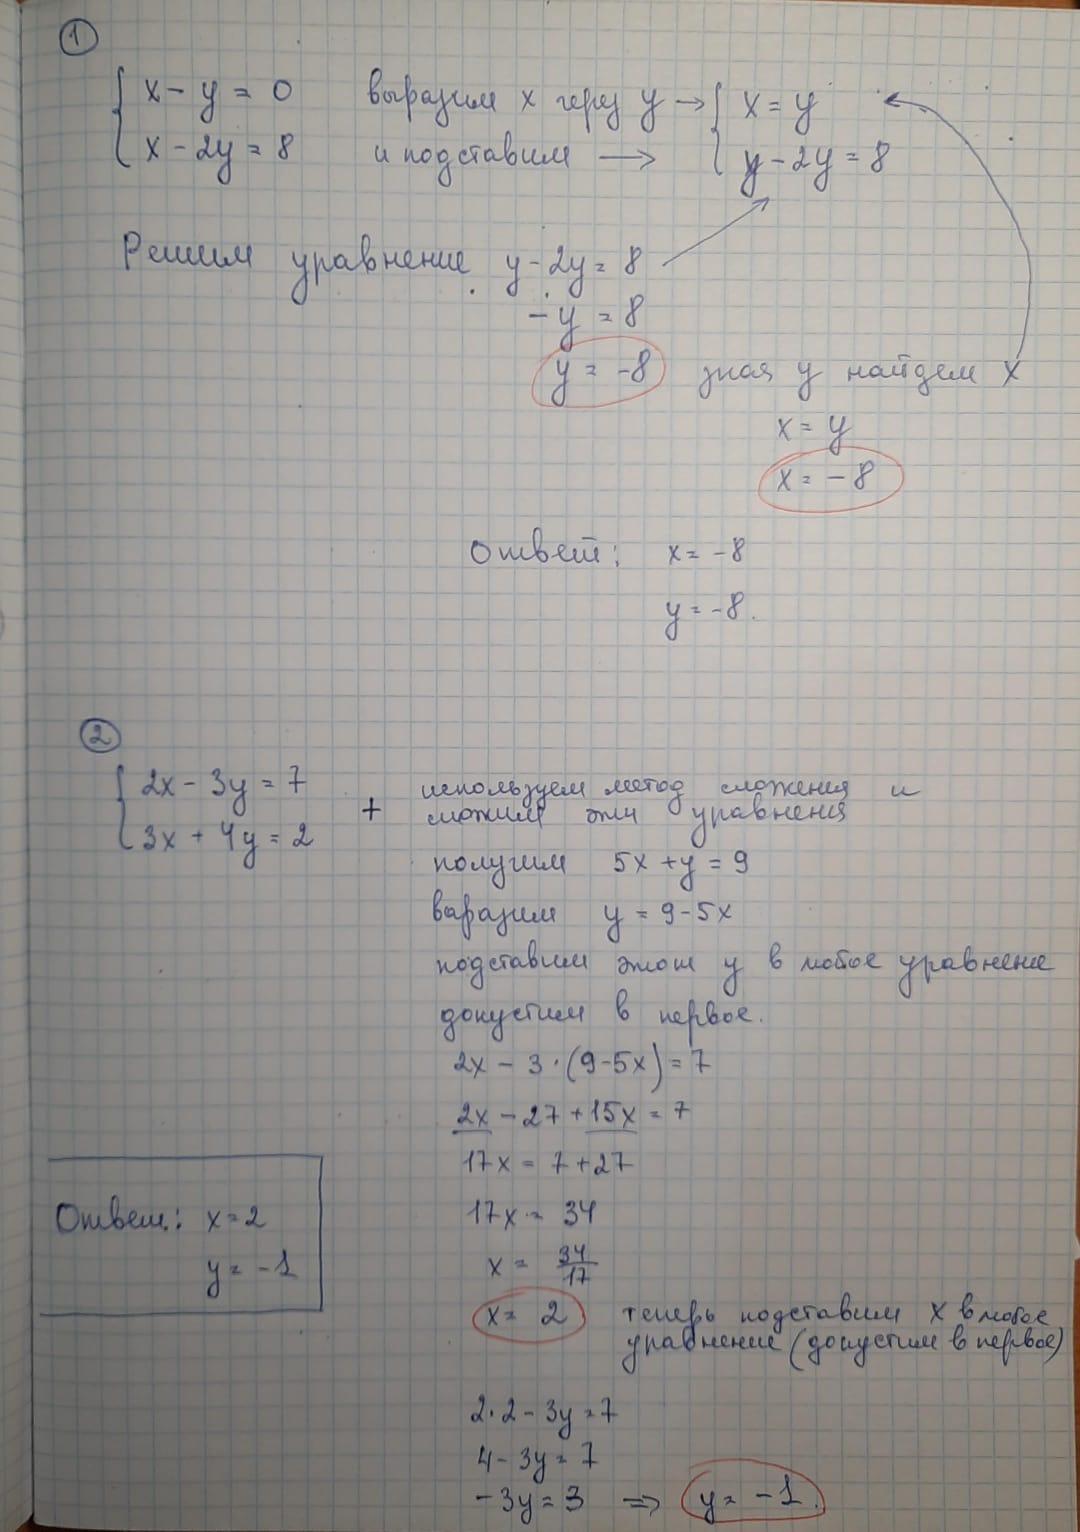 1
x - y = 0 выразим x через y → x = y
x - 2y = 8 и подставим → y - 2y = 8
Решим уравнение y - 2y = 8
- y = 8
y = -8 зная y найдем x
x = y
x = -8
Ответ: x = -8
y = -8.
2
2x - 3y = 7
3x + 4y = 2
+ используем метод сложения и
сложим эти уравнения
получим 5x + y = 9
варазим y = 9 - 5x
подставим этот y в любое уравнение
допустим в первое.
2x - 3·(9 - 5x) = 7
2x - 27 + 15x = 7
17x = 7 + 27
17x = 34
x = 34/17
x = 2 теперь подставим x в любое
уравнение (допустим в первое)
2·2 - 3y = 7
4 - 3y = 7
-3y = 3 => y = -1.
Ответ: x = 2
y = -1